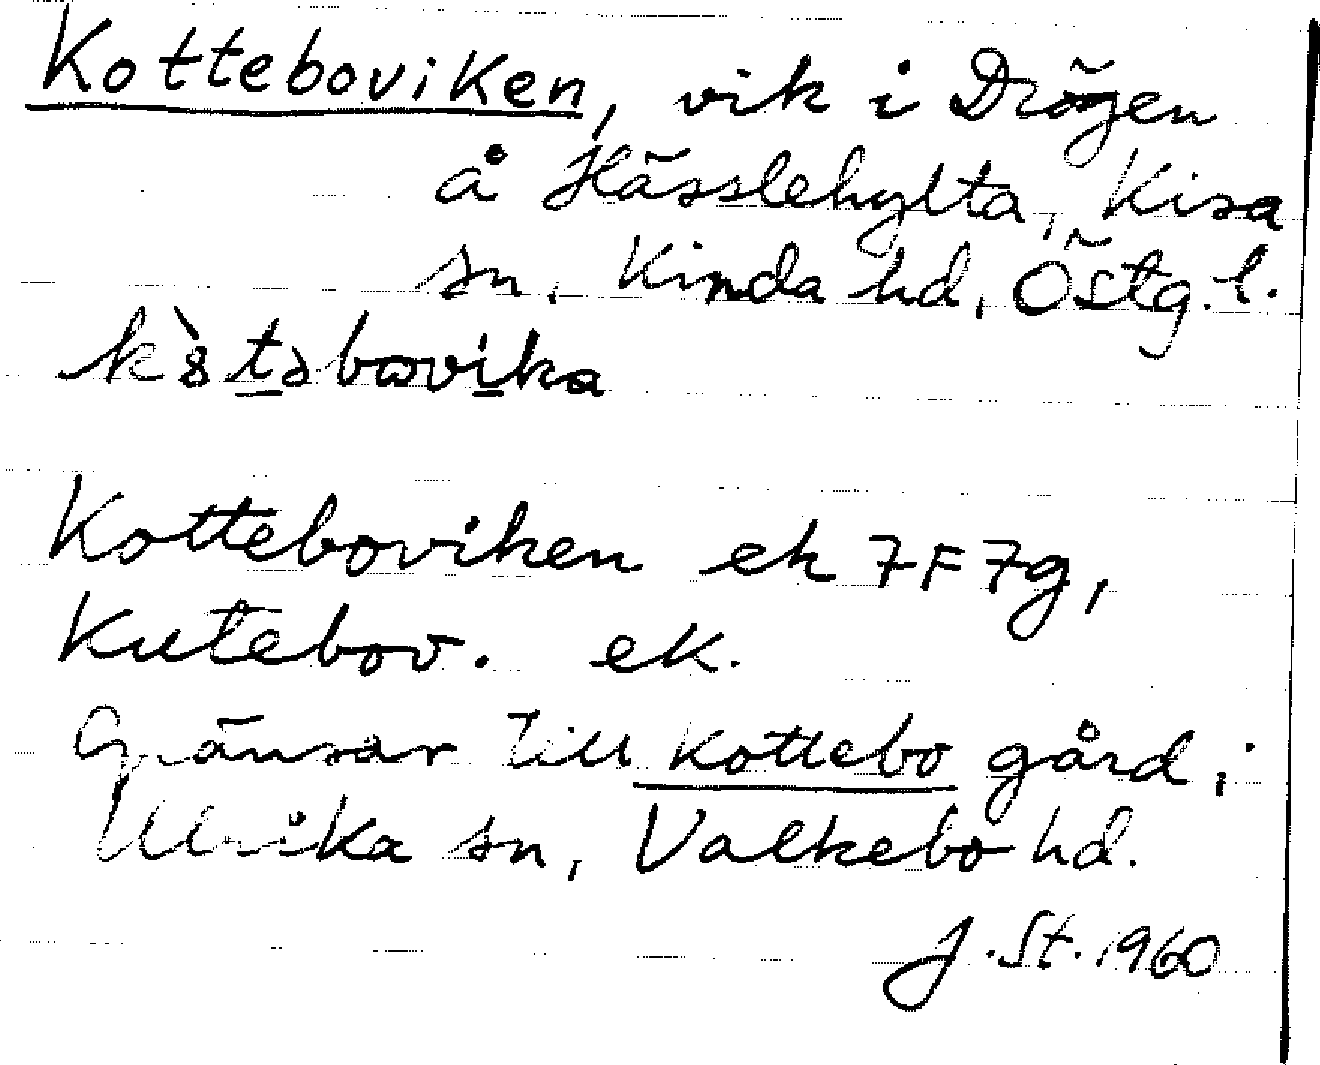 Kotteboviken, vik i Drögen
å Hässlehylta, Kisa
sn, Kinda hd, Östg. l.
Kotteboviken ek 7F7g,
Kutebov. ek.
Gränsar till Kottebo gård,
Ulrika sn, Valkebo hd.
J. St. 1960